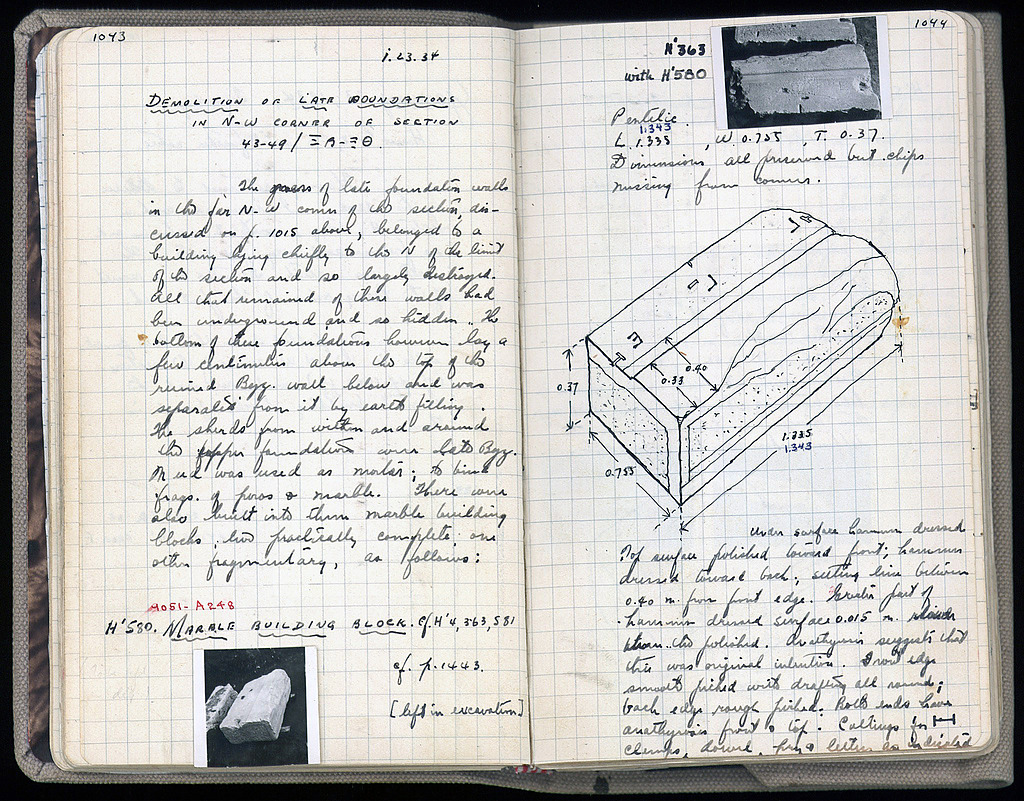 1043
1.23.34
DEMOLITION OF LATE FOUNDATIONS
IN N-W CORNER OF SECTION
43-49/ΞΑ-ΞΘ.
The of late foundation walls
in the far N-W corner of the section, dis-
cussed on p. 1015 above, belonged to a
building lying chiefly to the N of the limit
of the section and so largely destroyed.
All that remained of these walls had
been underground and so hidden. The
bottom of these foundations however lay a
few centimetres above the top of the
ruined Byz. wall below and was
separated from it by earth filling.
The sherds from within and around
the upper foundations were Late Byz.
Mud was used as mortar; to bind
frags. of poros & marble. There were
also built into them marble building
blocks, two practically complete, one
other fragmentary, as follows:
A051-A248
H'580. MARBLE BUILDING BLOCK. Cf. H'4, 363, 581
cf. p. 1443.
[left in excavation]
1044
H'363
with H'580
Pentelic.
1.343
L. 1.335, W. 0.755, T. 0.37.
Dimensions all preserved but chips
missing from corners.
0.37
0.33
0.40
0.755
1.335
1.343
Under surface hammer dressed
Top surface polished toward front; hammer
dressed toward back; setting line between
0.40 m. from front edge. Greater part of
hammer dressed surface 0.015 m.
than the polished. Anathyrosis suggests that
this was original intention. Front edge
smooth picked with drafting all round;
back edge rough picked. Both ends have
anathyrosis front & top. Cuttings for
clamps, dowel, & letters as indicated